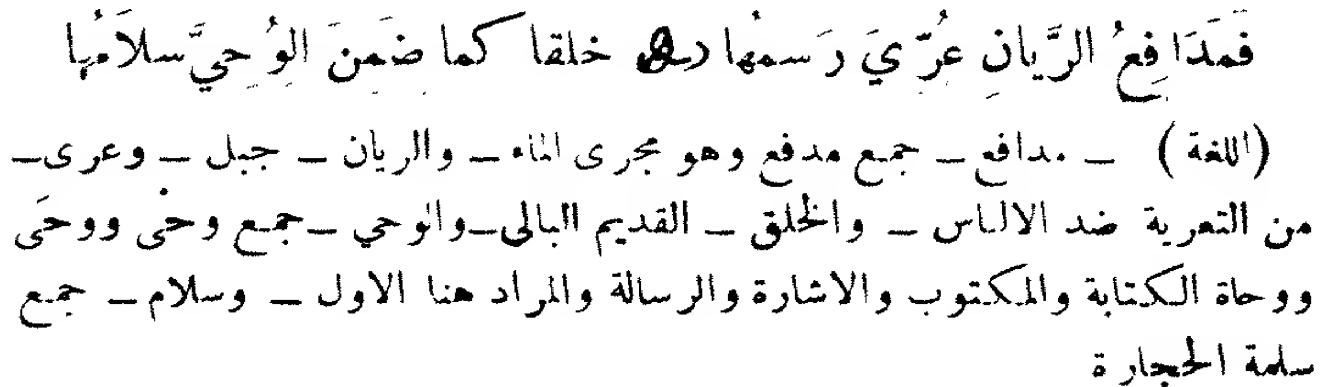 فَمَدَافِعُ الرَّيانِ عُرِّيَ رَسمُها خلقا كما ضَمَنَ الوُحِيَّ سلاَمُها
(اللغة) ـ مدافع ـ جمع مدفع وهو مجرى الماء ـ والريان ـ جبل ـ وعرى ـ
من التعرية ضد الالباس ـ والخلق ـ القديم البالى ـ والوحي ـ جمع وحْى ووحَى
ووحاة الكتابة والمكتوب والاشارة والرسالة والمراد هنا الاول ـ وسلام ـ جمع
سلمة الحجارة